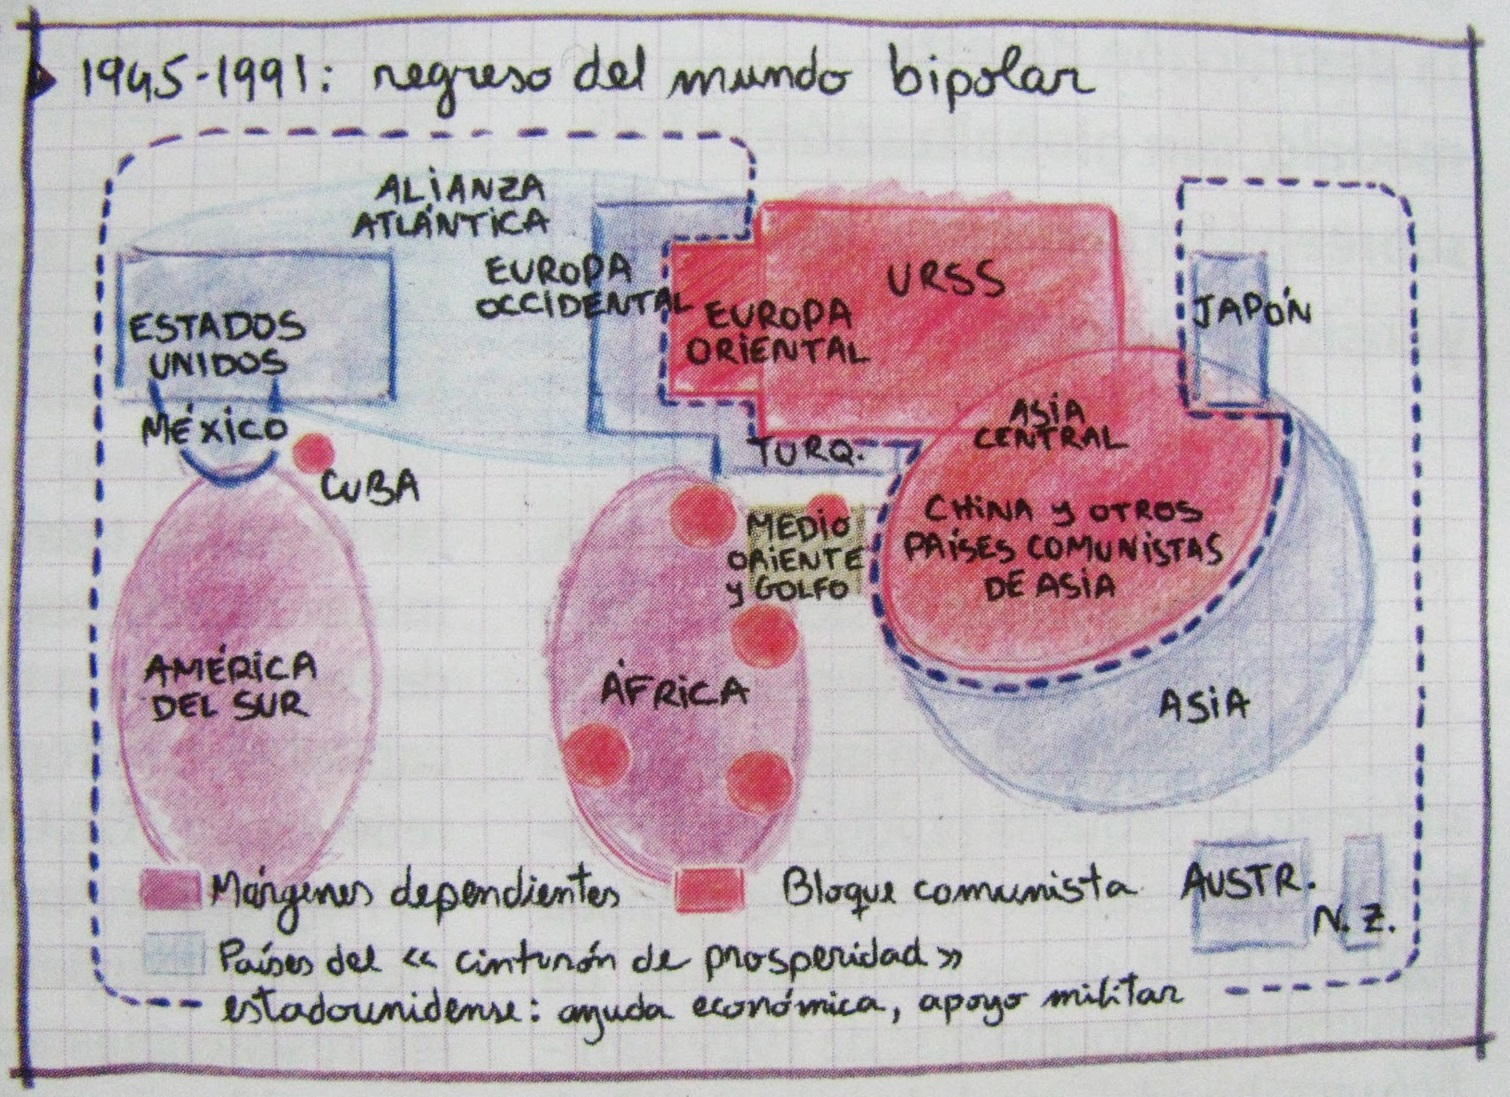 1945-1991: regreso del mundo bipolar
ALIANZA
ATLÁNTICA
EUROPA
OCCIDENTAL
URSS
EUROPA
ORIENTAL
JAPÓN
ESTADOS
UNIDOS
MÉXICO
CUBA
TURQ.
ASIA
CENTRAL
CHINA Y OTROS
PAÍSES COMUNISTAS
DE ASIA
MEDIO
ORIENTE
y GOLFO
AMÉRICA
DEL SUR
ÁFRICA
ASIA
AUSTR.
N. Z.
Márgenes dependientes
Bloque comunista
Países del « cinturón de prosperidad »
estadounidense: ayuda económica, apoyo militar